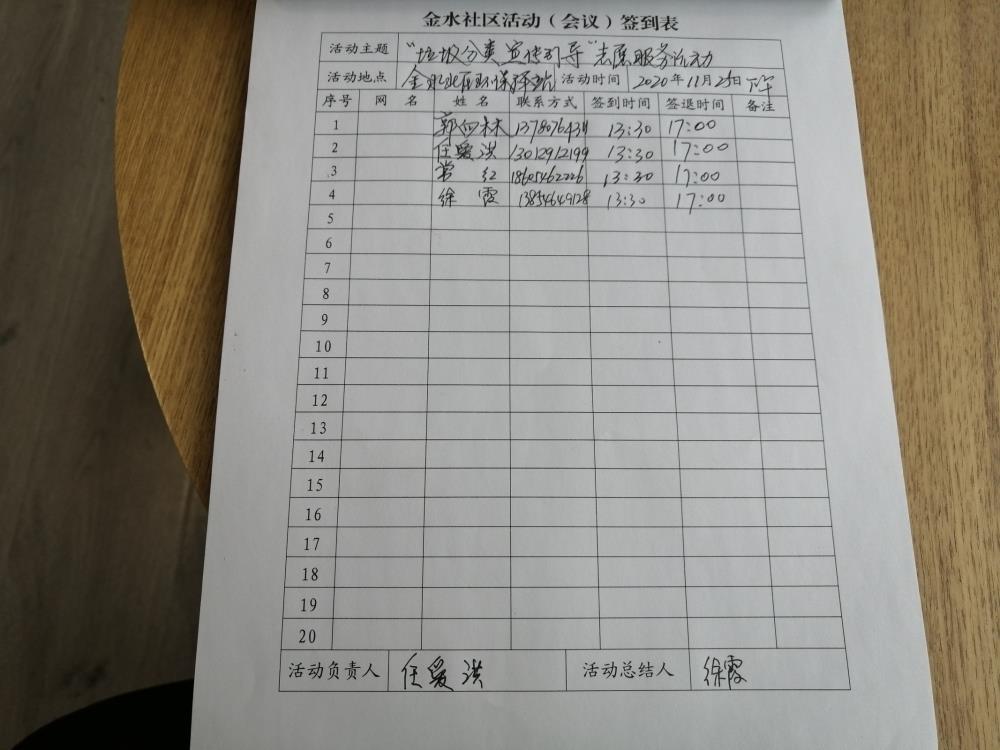 金水社区活动（会议）签到表
活动主题 “垃圾分类宣传引导”志愿服务活动
活动地点 金水社区环保驿站 活动时间 2020年11月25日下午
序号 网 名 姓 名 联系方式 签到时间 签退时间 备注
1 13:30 17:00
2 任爱洪 13012912199 13:30 17:00
3 常 红 18605462226 13:30 17:00
4 徐 霞 13854649128 13:30 17:00
5
6
7
8
9
10
11
12
13
14
15
16
17
18
19
20
活动负责人 任爱洪 活动总结人 徐霞